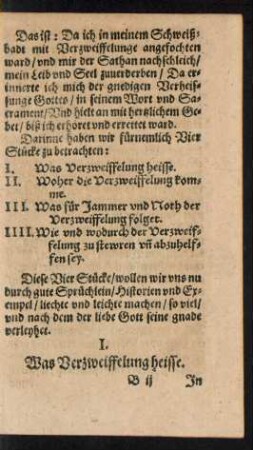 Das ist: Da ich in meinem Schweiß⸗
badt mit Verzweiffelunge angefochten
ward/ vnd mir der Sathan nachschleich/
mein Leib vnd Seel zuuerderben/ Da er⸗
innerte ich mich der gnedigen Verheis⸗
sunge Gottes/ in seinem Wort vnd Sa⸗
crament/ Vnd hielt an mit hertzlichem Ge⸗
bet/ biß ich erhoret vnd errettet ward.
Darinne haben wir fürnemlich Vier
Stücke zu betrachten:
I. Was Verzweiffelung heisse.
II. Woher die Verzweiffelung kom⸗
me.
III. Was für Jammer vnd Noth der
Verzweiffelung folget.
IIII. Wie vnd wodurch der Verzweif⸗
felung zu stewren vñ abzuhelf⸗
fen sey.
Diese Vier Stücke/ wollen wir vns nu
durch gute Sprüchlein/ Historien vnd Ex⸗
empel/ liechte vnd leichte machen/ so viel/
vnd nach dem der liebe Gott seine gnade
verleyhet.
I.
Was Verzweiffelung heisse.
B ij In